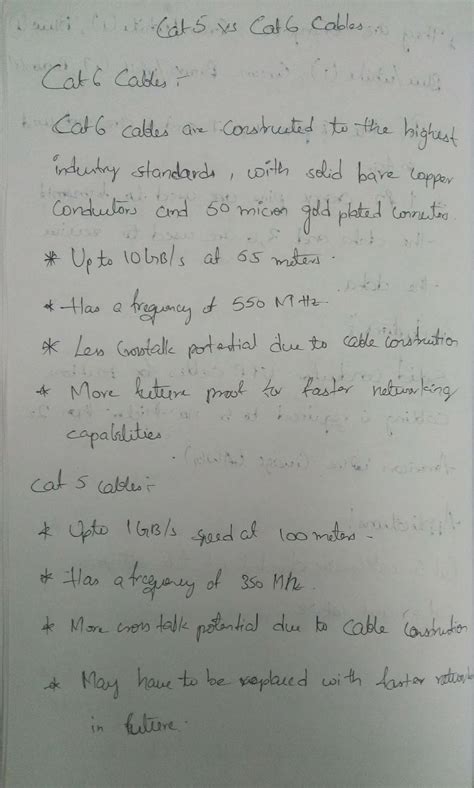 Cat 5 vs Cat 6 Cables
Cat 6 Cables :-
Cat 6 cables are constructed to the highest
industry standards, with solid bare copper
conductors and 50 micron gold plated connectors.
* Up to 10GB/s at 55 meters.
* Has a frequency of 550 MHz.
* Less Crosstalk portential due to cable constrution
* More future proof for faster networking
capabilities.
Cat 5 cables :-
* Upto 1GB/s speed at 100 meters.
* Has a frequency of 350 Mhz.
* More cross talk potential due to cable construtiion
* May have to be replaced with faster networks
in future.